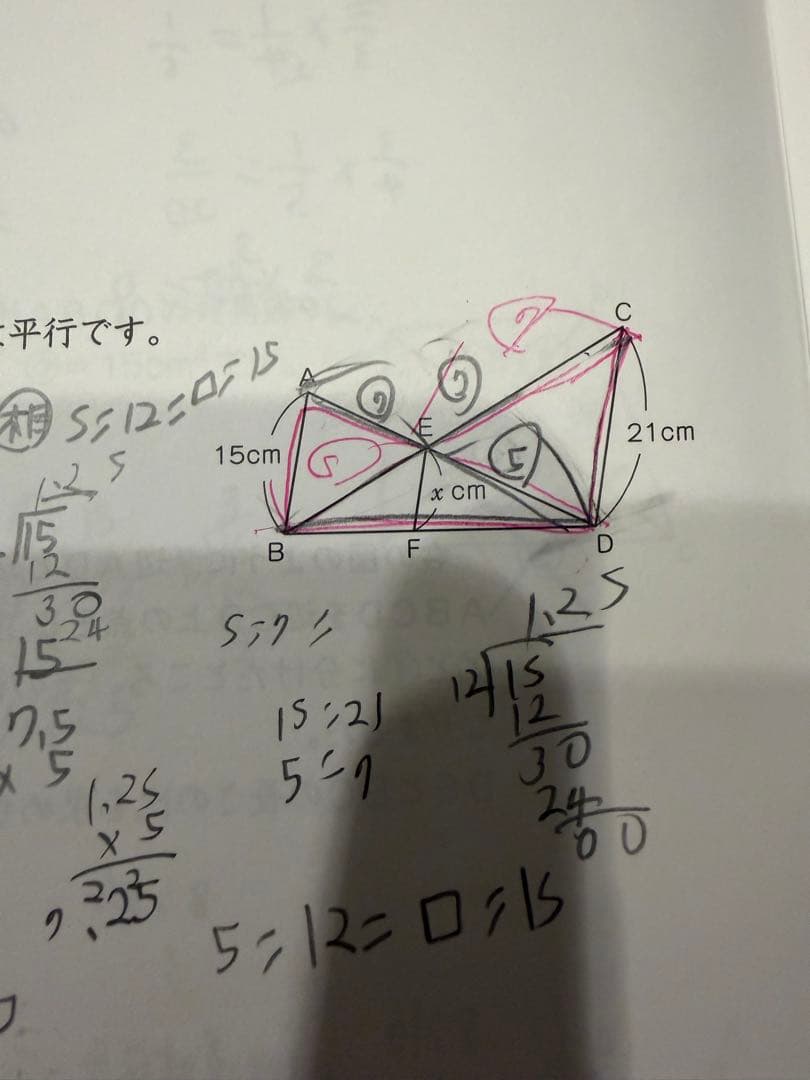 平行です。
相 5:12=□:15
C
⑦
A
⑦
⑦
E
⑤
⑤
15cm
21cm
x cm
B
F
D
1.25
15
12
30
24
15
7.5
× 5
1.25
× 5
5:7=
15:21
5:7
1.25
12 15
12
30
24
00
5:12=□:15